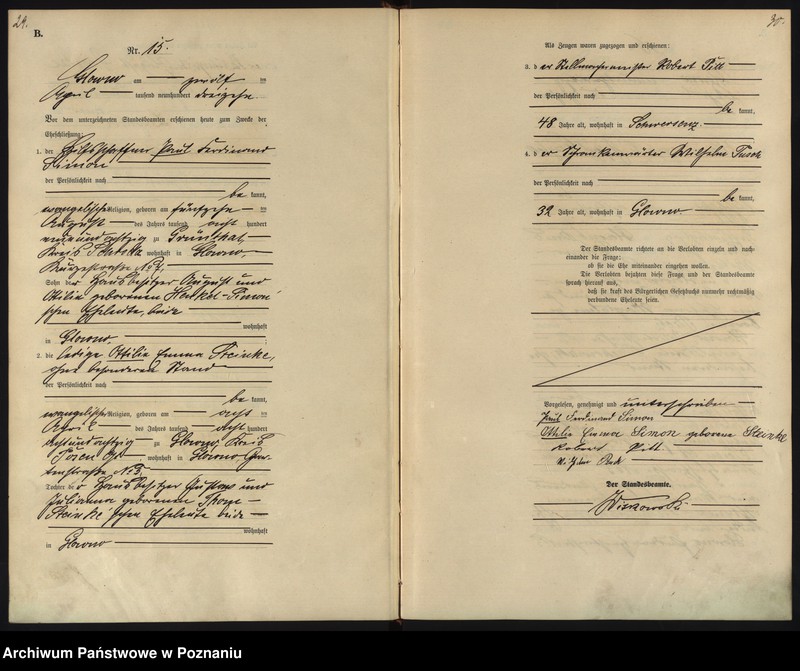 29.
B.
Nr. 15.
Glowno am zwölf ten
April tausend neunhundert dreizehn
Vor dem unterzeichneten Standesbeamten erschienen heute zum Zwecke der
Eheschließung:
1. der Hilfsschaffner Paul Ferdinand
Simon
der Persönlichkeit nach
be kannt,
evangelischer Religion, geboren am fünfzehn ten
August des Jahres tausend acht hundert
neunundachtzig zu Grünthal,
Kreis wohnhaft in Glowno,
No
Sohn der Hausbesitzer August und
Ottilie geborenen Henkel-Simon'
schen Eheleute, beide
wohnhaft
in Glowno
2. die ledige Ottilie Emma Steinke,
ohne besonderen Stand
der Persönlichkeit nach
be kannt,
evangelischer Religion, geboren am acht ten
April des Jahres tausend acht hundert
achtundachtzig zu Glowno Kreis
Posen Ost, wohnhaft in Glowno, Gar-
tenstraße No 3
Tochter der Hausbesitzer Gustav und
Julianna geborenen
Steinke'schen Eheleute beide
wohnhaft
in Glowno
30.
Als Zeugen waren zugezogen und erschienen:
3. der Stellmachermeister Robert Pitt
der Persönlichkeit nach
be kannt,
48 Jahre alt, wohnhaft in Schwersenz
4. der Schrankenwärter Wilhelm
der Persönlichkeit nach
be kannt,
32 Jahre alt, wohnhaft in Glowno
Der Standesbeamte richtete an die Verlobten einzeln und nach-
einander die Frage:
ob sie die Ehe miteinander eingehen wollen.
Die Verlobten bejahten diese Frage und der Standesbeamte
sprach hierauf aus,
daß sie kraft des Bürgerlichen Gesetzbuchs nunmehr rechtmäßig
verbundene Eheleute seien.
Vorgelesen, genehmigt und unterschrieben
Paul Ferdinand Simon
Ottilie Emma Simon geborene Steinke
Robert Pitt
Wilhelm
Der Standesbeamte.
Archiwum Państwowe w Poznaniu